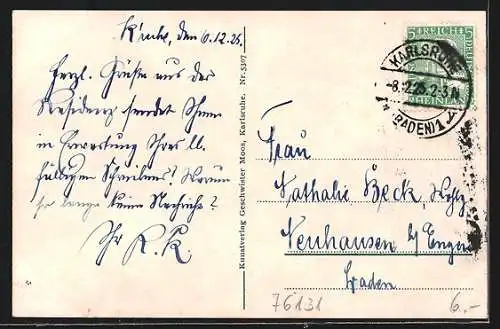 K'ruhe, den 6.12.25.
Herzl. Grüße aus der
Residenz sendet Ihnen
in Erwartung Ihres ll.
fälligen Schreibens! Warum
so lange keine Nachricht?
Ihr R. K.
Kunstverlag Geschwister Moos, Karlsruhe. Nr. 5307
5 REICH 5
RHEINLAN
KARLSRUHE
-8.12.25.2-3N
(BADEN) 1
Frau
Nathalie Beck,
Neuhausen b/ Engen
Baden
76131
6.-